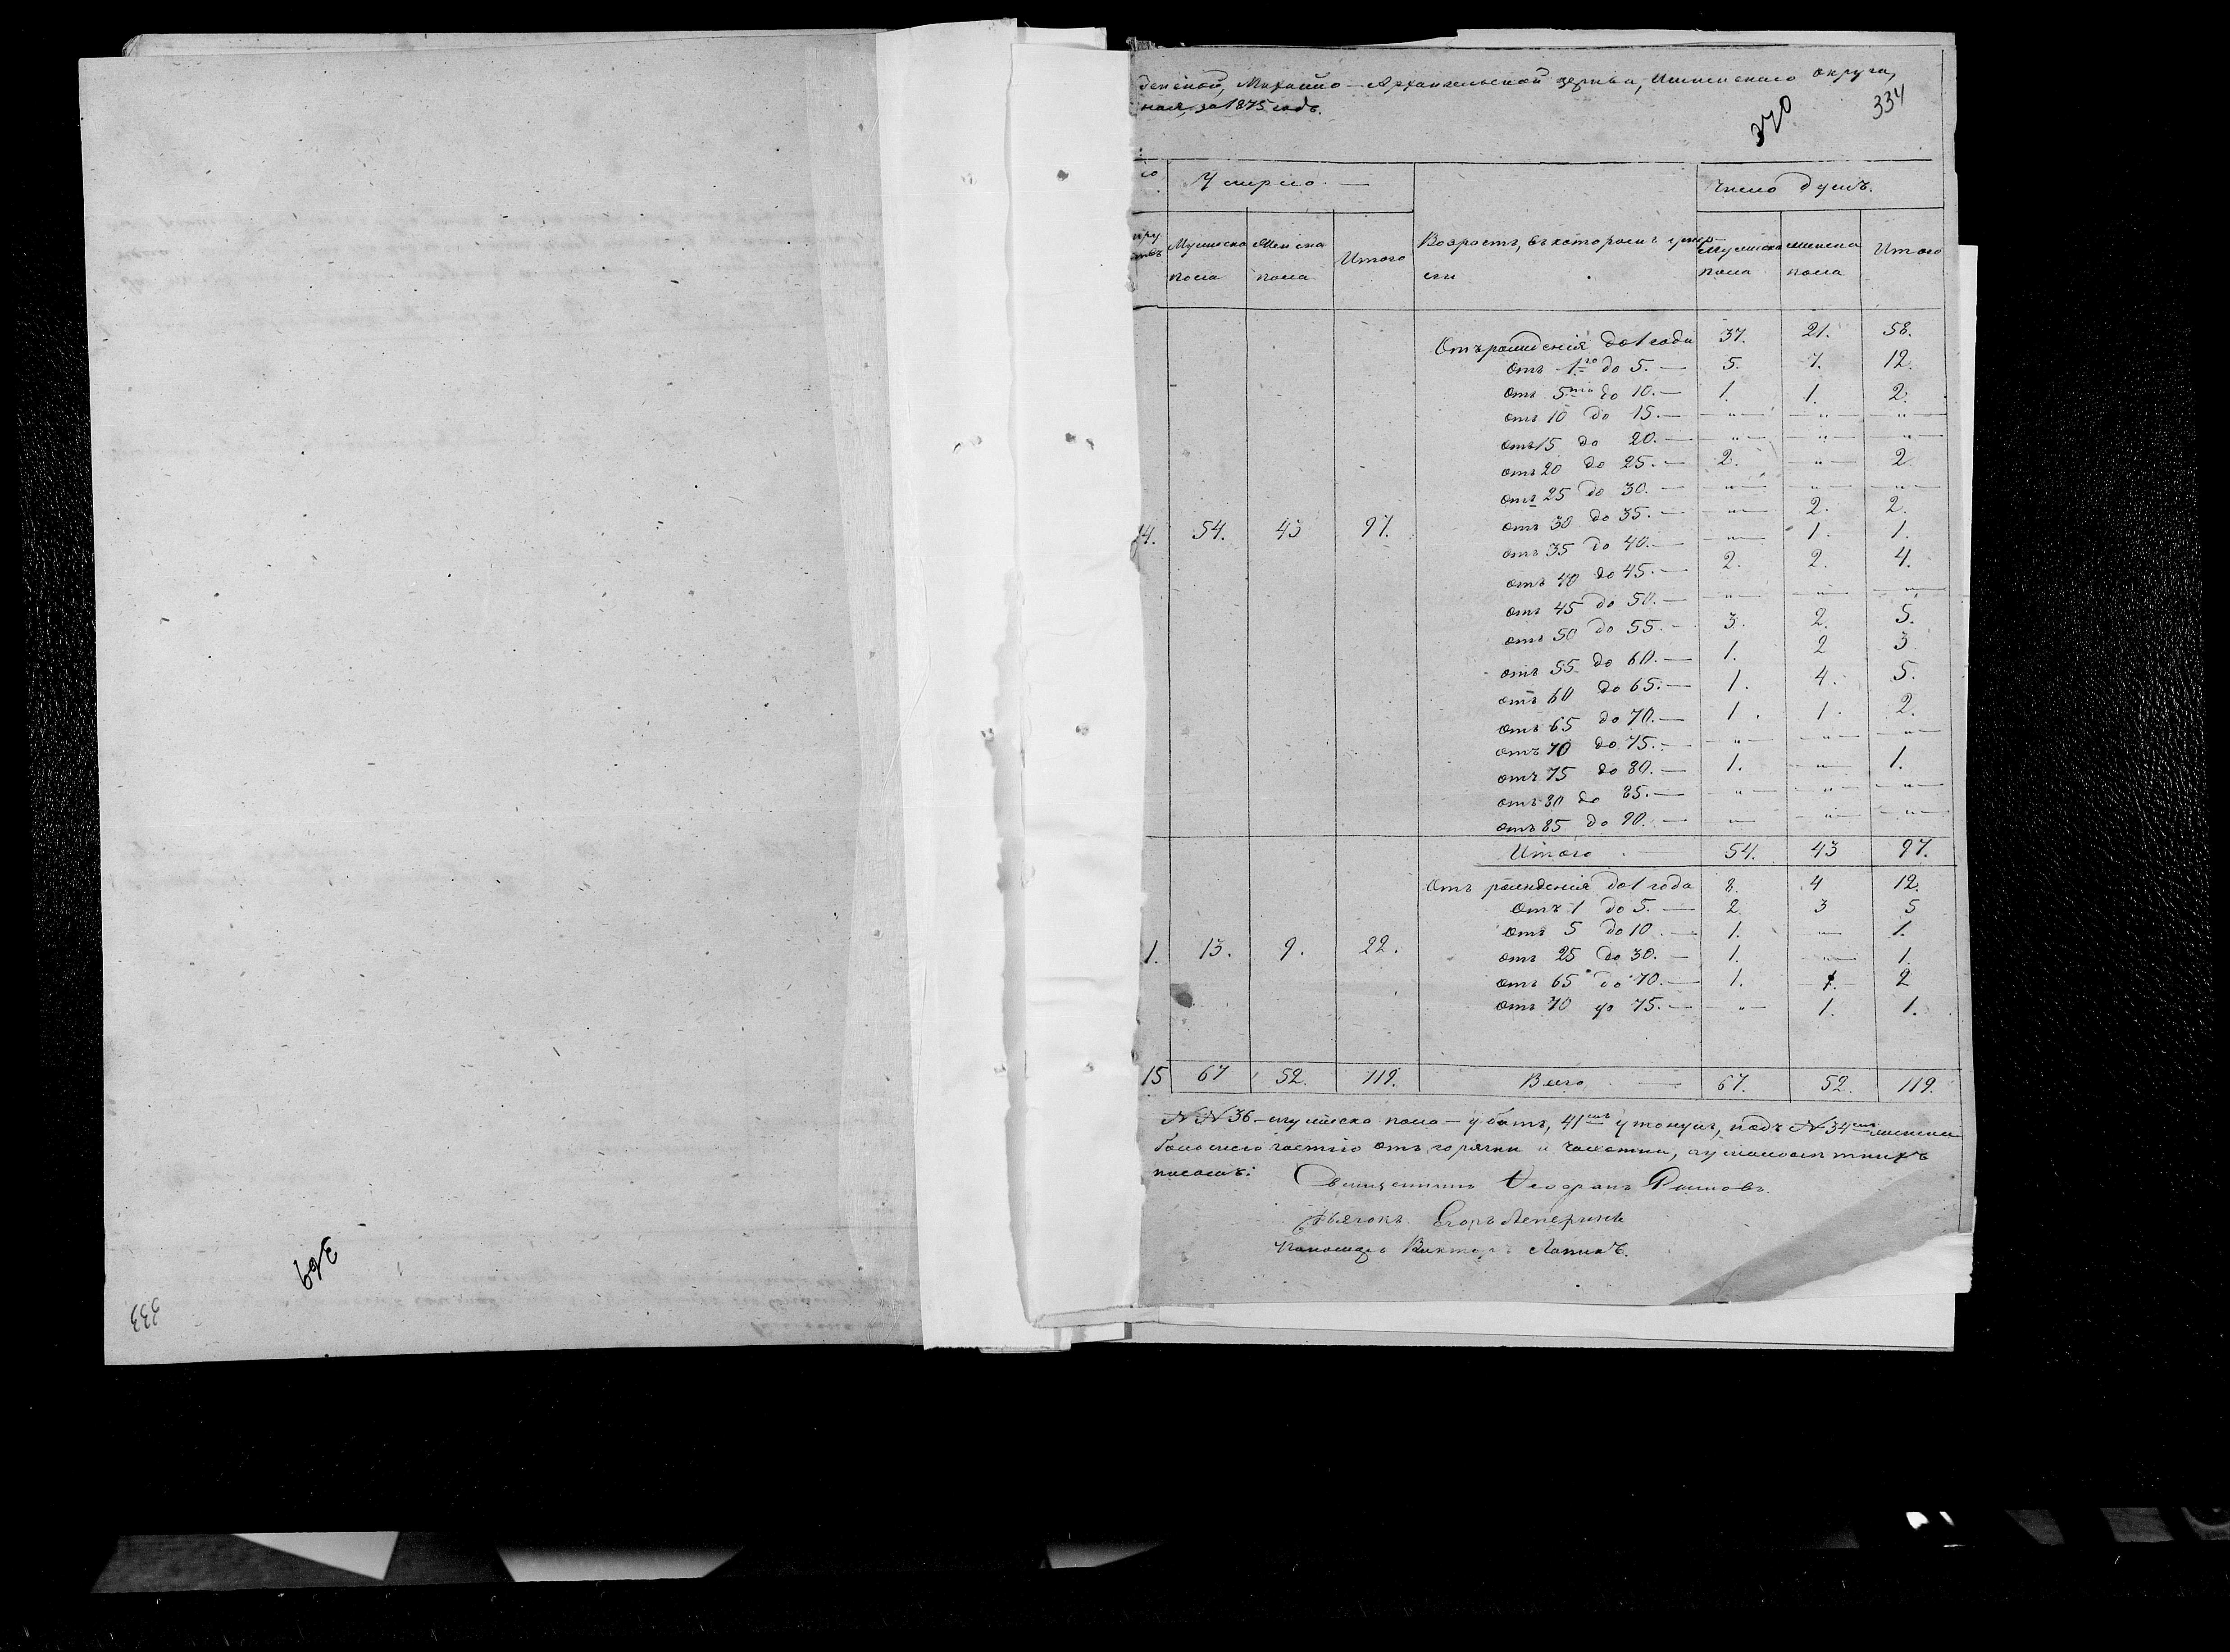 денской, Михайло-Архангельской церкви, Ишимскаго округа,
ная, за 1875 годъ.
370
334
Умерло. —
Число душъ.
Мужеска пола
Женска пола
Итого
Возрастъ, въ которомъ умерли
Мужеска пола
женска пола
Итого
Отъ рожденія до 1 года 37. 21. 58.
отъ 1го до 5. — 5. 7. 12.
отъ 5ти до 10. — 1. 1. 2.
отъ 10 до 15. — „ „ „
отъ 15 до 20. — „ „ „
отъ 20 до 25. — 2. „ 2
отъ 25 до 30. — „ „ „
отъ 30 до 35. — „ 2. 2.
4. 54. 43 97.
отъ 35 до 40. — „ 1. 1.
отъ 40 до 45. — 2. 2. 4.
отъ 45 до 50. — „ „ „
отъ 50 до 55. — 3. 2. 5.
отъ 55 до 60. — 1. 2 3
отъ 60 до 65. — 1. 4. 5.
отъ 65 до 70. — 1. 1. 2.
отъ 70 до 75. — „ „ „
отъ 75 до 80. — 1. „ 1.
отъ 80 до 85. — „ „ „
отъ 85 до 90. — „ „ „
Итого 54. 43 97.
Отъ рожденія до 1 года 8. 4 12.
Отъ 1 до 5. — 2 3 5
отъ 5 до 10. — 1. — 1.
1. 13. 9. 22.
отъ 25 до 30. — 1. „ 1.
отъ 65 до 70. — 1. 1. 2
отъ 70 до 75. — „ 1. 1.
15 67 52. 119. Всего 67. 52. 119
NN 36 — мужеска пола — убитъ, 41мъ утонулъ, подъ N 34мъ женска
большею частію отъ горячки и чахотки,
Священникъ
Дьячокъ Егоръ
Пономарь Викторъ
369
333